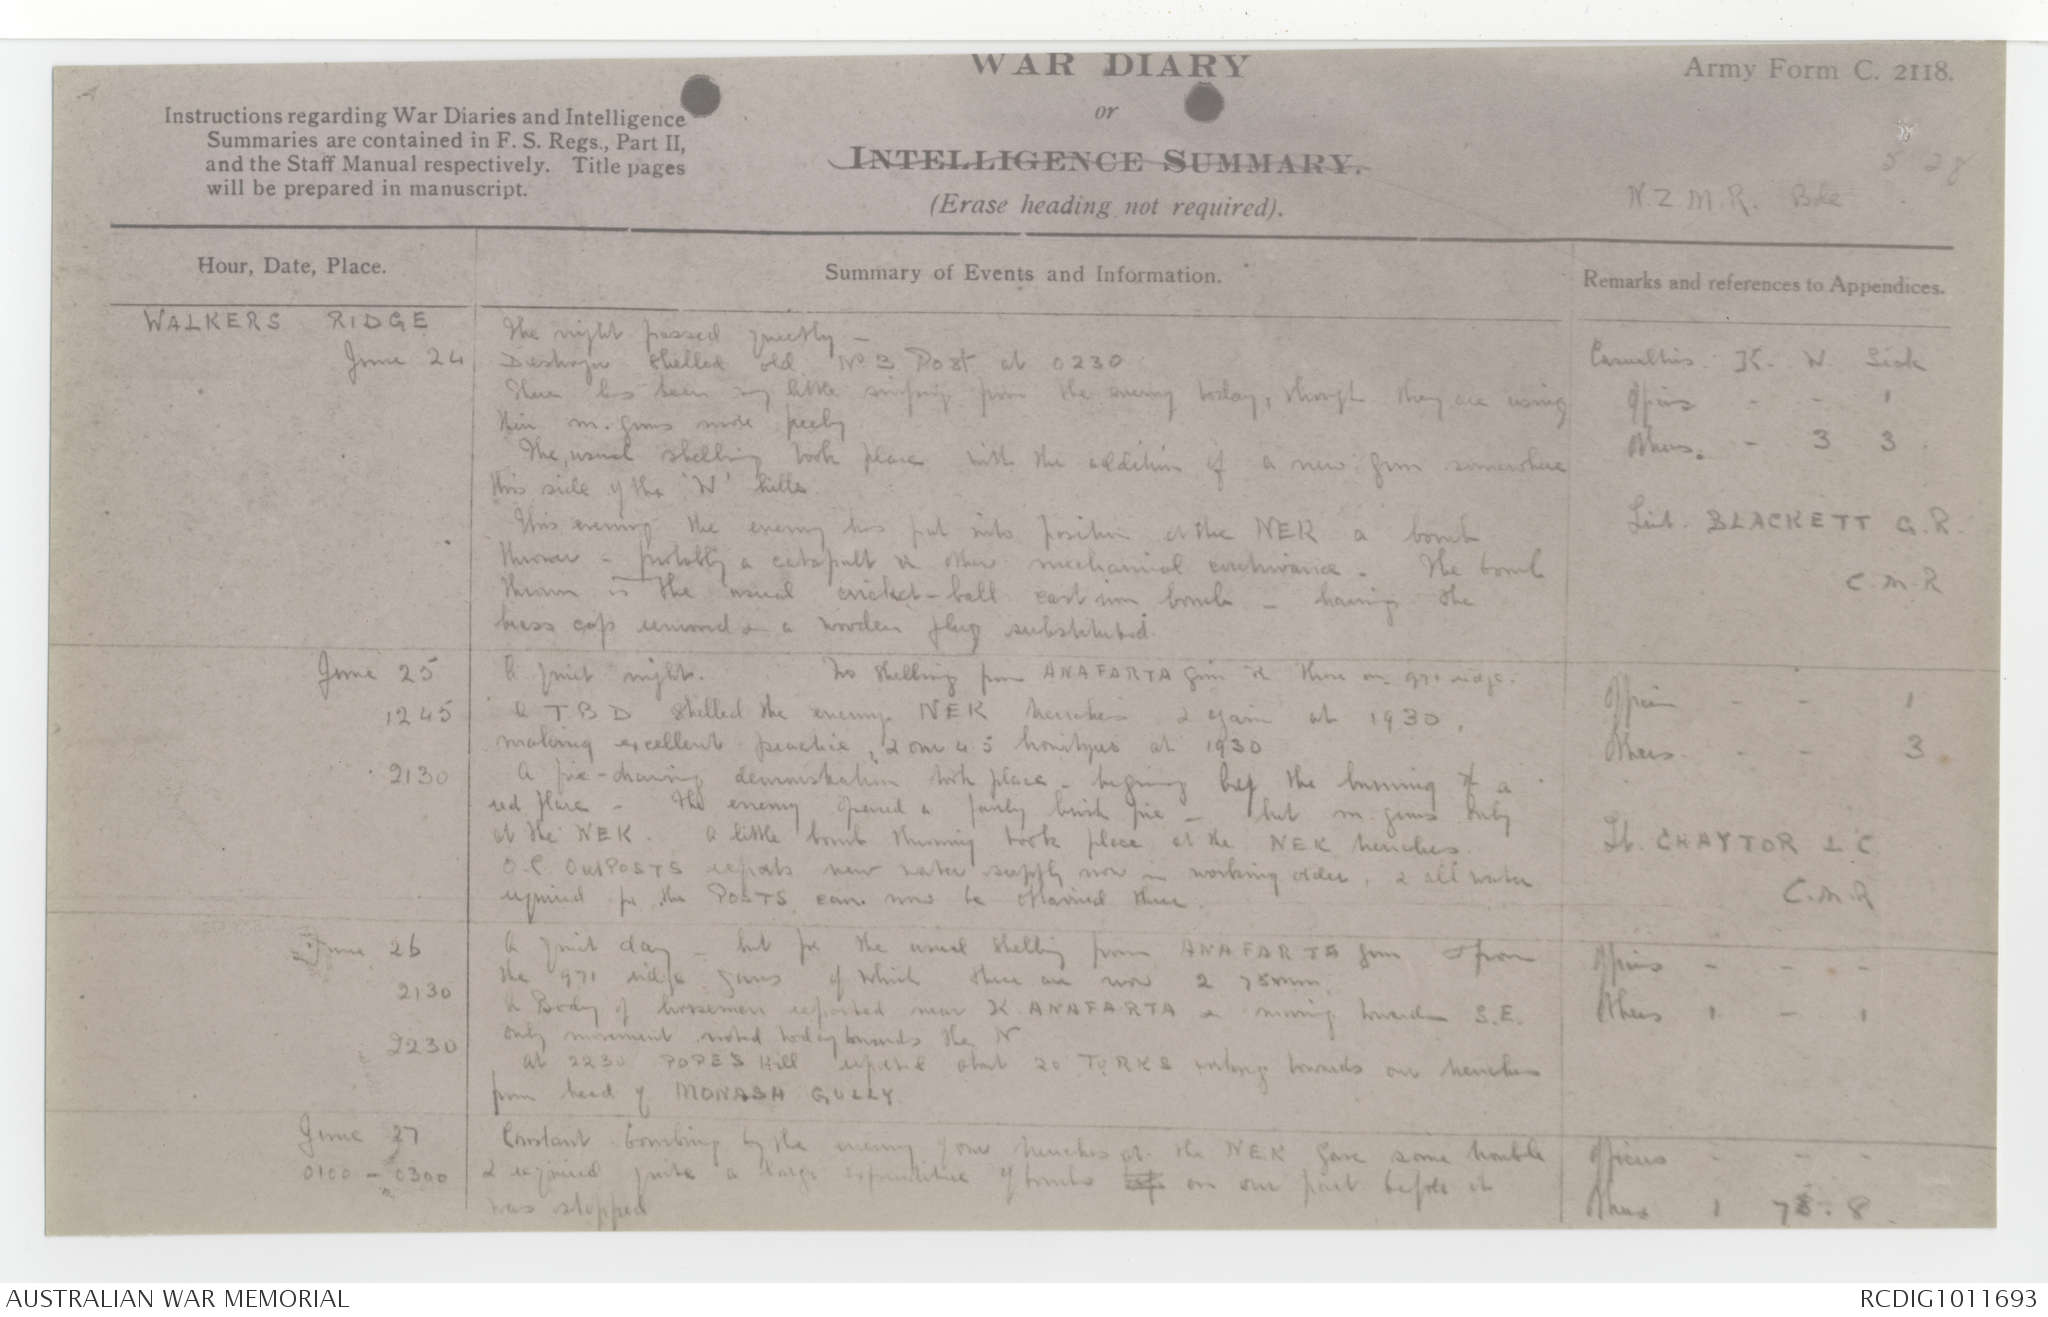 WAR DIARY
or
INTELLIGENCE SUMMARY.
(Erase heading not required).
Army Form C. 2118.
Instructions regarding War Diaries and Intelligence
Summaries are contained in F. S. Regs., Part II,
and the Staff Manual respectively. Title pages
will be prepared in manuscript.
N.Z.M.R. Bde
Hour, Date, Place.
Summary of Events and Information.
Remarks and references to Appendices.
WALKERS RIDGE
June 24
The night passed quietly -
Destroyer shelled old No 3 Post at 0230
There has been very little sniping from the enemy today, though they are using
their m. guns more freely
The usual shelling took place with the addition of a new gun somewhere
this side of the 'W' hills.
This evening the enemy has put into position at the NEK a bomb
thrower - probably a catapult or other mechanical contrivance - The bomb
thrown is the usual cricket-ball cast iron bomb - having the
brass cap removed & a wooden plug substituted.
Casualties. K. W. Sick
Officers - - 1
Others. - 3 3.
Lieut. BLACKETT G.R.
C.M.R
June 25
1245
2130
A quiet night. No shelling from ANAFARTA gun or those on 971 ridge.
A TBD shelled the enemy NEK trenches & again at 1930,
making excellent practice, & our 4.5 howitzers at 1930
A fire-drawing demonstration took place - beginning by the burning of a
red flare - The enemy opened a fairly brisk fire - but m. guns only
at the NEK. A little bomb throwing took place at the NEK trenches.
O.C. OUTPOSTS reports new water supply now in working order, & all water
required for the POSTS can now be obtained there.
Officers - - 1
Others. - - 3
Lt. CHAYTOR L C
C.M.R
June 26
2130
2230
A quiet day - but for the usual shelling from ANAFARTA gun & from
the 971 ridge guns of which there are now 2 75mm.
A Body of horsemen reported near K. ANAFARTA & moving towards S.E.
only movement noted today towards the N
At 2230 POPES Hill reported about 20 TURKS towards our trenches
from head of MONASH GULLY
Officers - - -
Others 1 - 1
June 27
0100 - 0300
Constant bombing by the enemy of our trenches at the NEK gave some trouble
& required quite a large expenditure of bombs on our part before it
was stopped
Officers - - -
Others 1 7 . 8.
AUSTRALIAN WAR MEMORIAL
RCDIG1011693